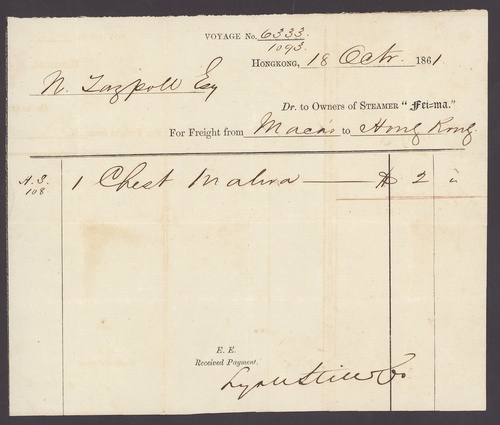 VOYAGE No. 6333.
1093.
HONGKONG, 18 Octr. 1861
N. Tarpoll Esq
Dr. to Owners of STEAMER "Fei=ma."
For Freight from Macao to Hong Kong.
A.S. 108 1 Chest Malwa — $ 2 "
E. E.
Received Payment,
Lyall Still & Co